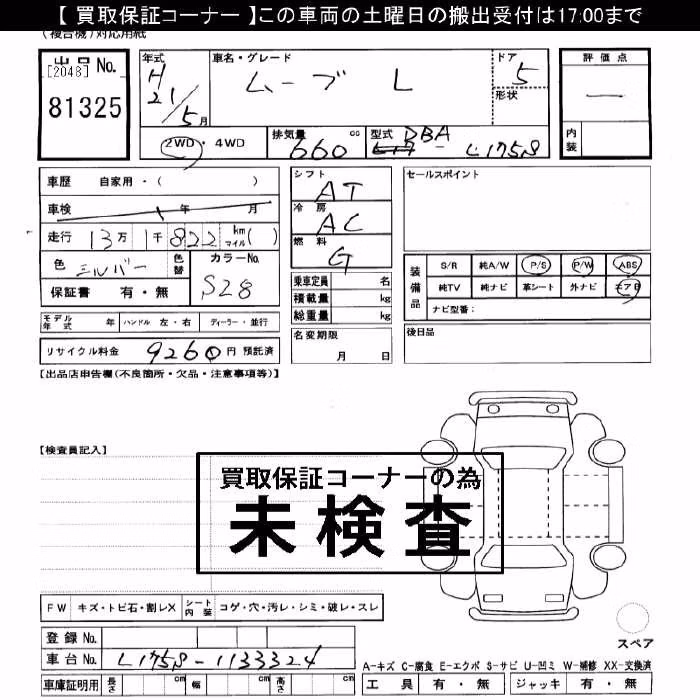 【 買取保証コーナー 】この車両の土曜日の搬出受付は17:00まで
(複合機)対応用紙
出品 No.
[2048]
81325
年式
H
21/5月
車名・グレード
ムーブ L
ドア
5
形状
評価点
—
内装
2WD・4WD
排気量 cc
660
型式 DBA
- L175S
車歴 自家用・( )
車検 年 月
走行 13万1千822 km マイル( )
色 シルバー
色替
カラーNo.
S28
保証書 有・無
モデル年式 年
ハンドル 左・右
ディーラー・並行
リサイクル料金 9260円 預託済
シフト
AT
冷房
AC
燃料
G
乗車定員 名
積載量 kg
総重量 kg
名変期限
月 日
セールスポイント
装備品
S/R 純A/W P/S P/W ABS
純TV 純ナビ 革シート 外ナビ エアB
ナビ型番:
後日品
【出品店申告欄(不良箇所・欠品・注意事項等)】
【検査員記入】
買取保証コーナーの為
未検査
FW キズ・トビ石・割レX
シート内装 コゲ・穴・汚レ・シミ・破レ・スレ
登録 No.
車台 No. L175S-1133324
車庫証明用 長さ cm 幅 cm 高さ cm
スペア
A-キズ C-腐食 E-エクボ S-サビ U-凹ミ W-補修 XX-交換済
工具 有・無 ジャッキ 有・無